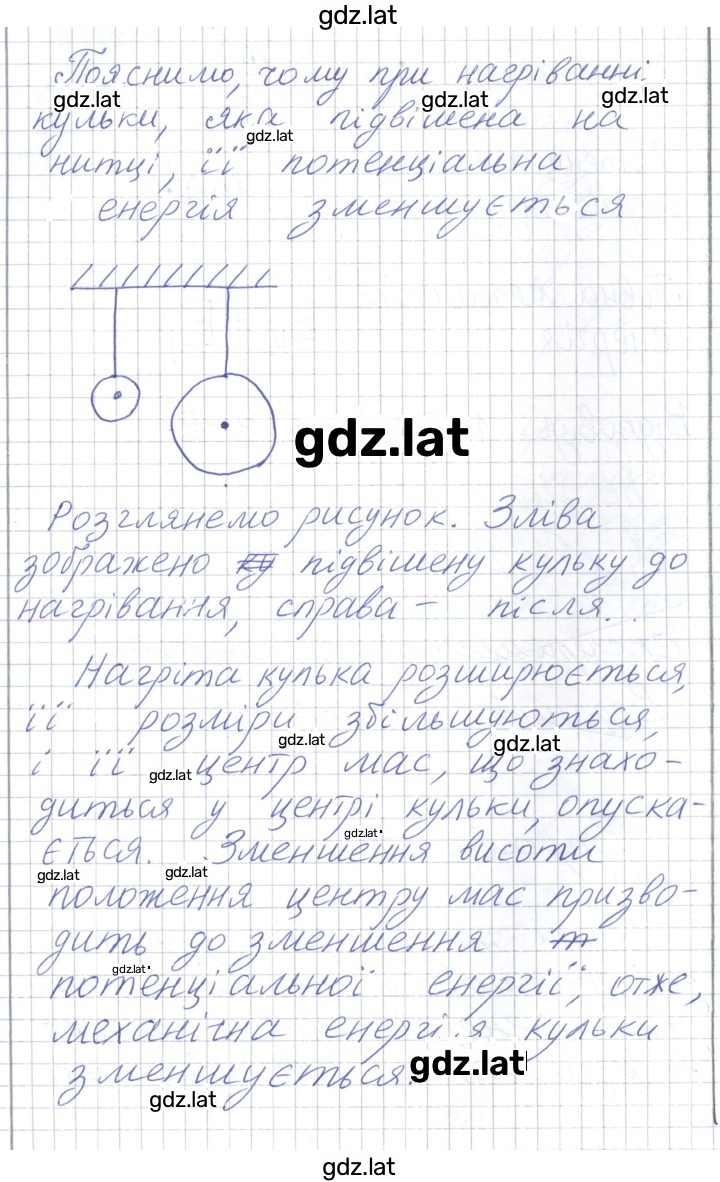 gdz.lat
Пояснимо, чому при нагріванні
gdz.lat gdz.lat gdz.lat
кульки, яка підвішена на
gdz.lat
нитці, її потенціальна
енергія зменшується
gdz.lat
Розглянемо рисунок. Зліва
зображено підвішену кульку до
нагрівання, справа – після.
Нагріта кулька розширюється,
її розміри збільшуються,
gdz.lat gdz.lat
і її центр мас, що знахо-
gdz.lat
диться у центрі кульки, опуска-
gdz.lat
ється. Зменшення висоти
gdz.lat gdz.lat
положення центру мас призво-
дить до зменшення
gdz.lat
потенціальної енергії, отже,
механічна енергія кульки
зменшується.
gdz.lat
gdz.lat
gdz.lat